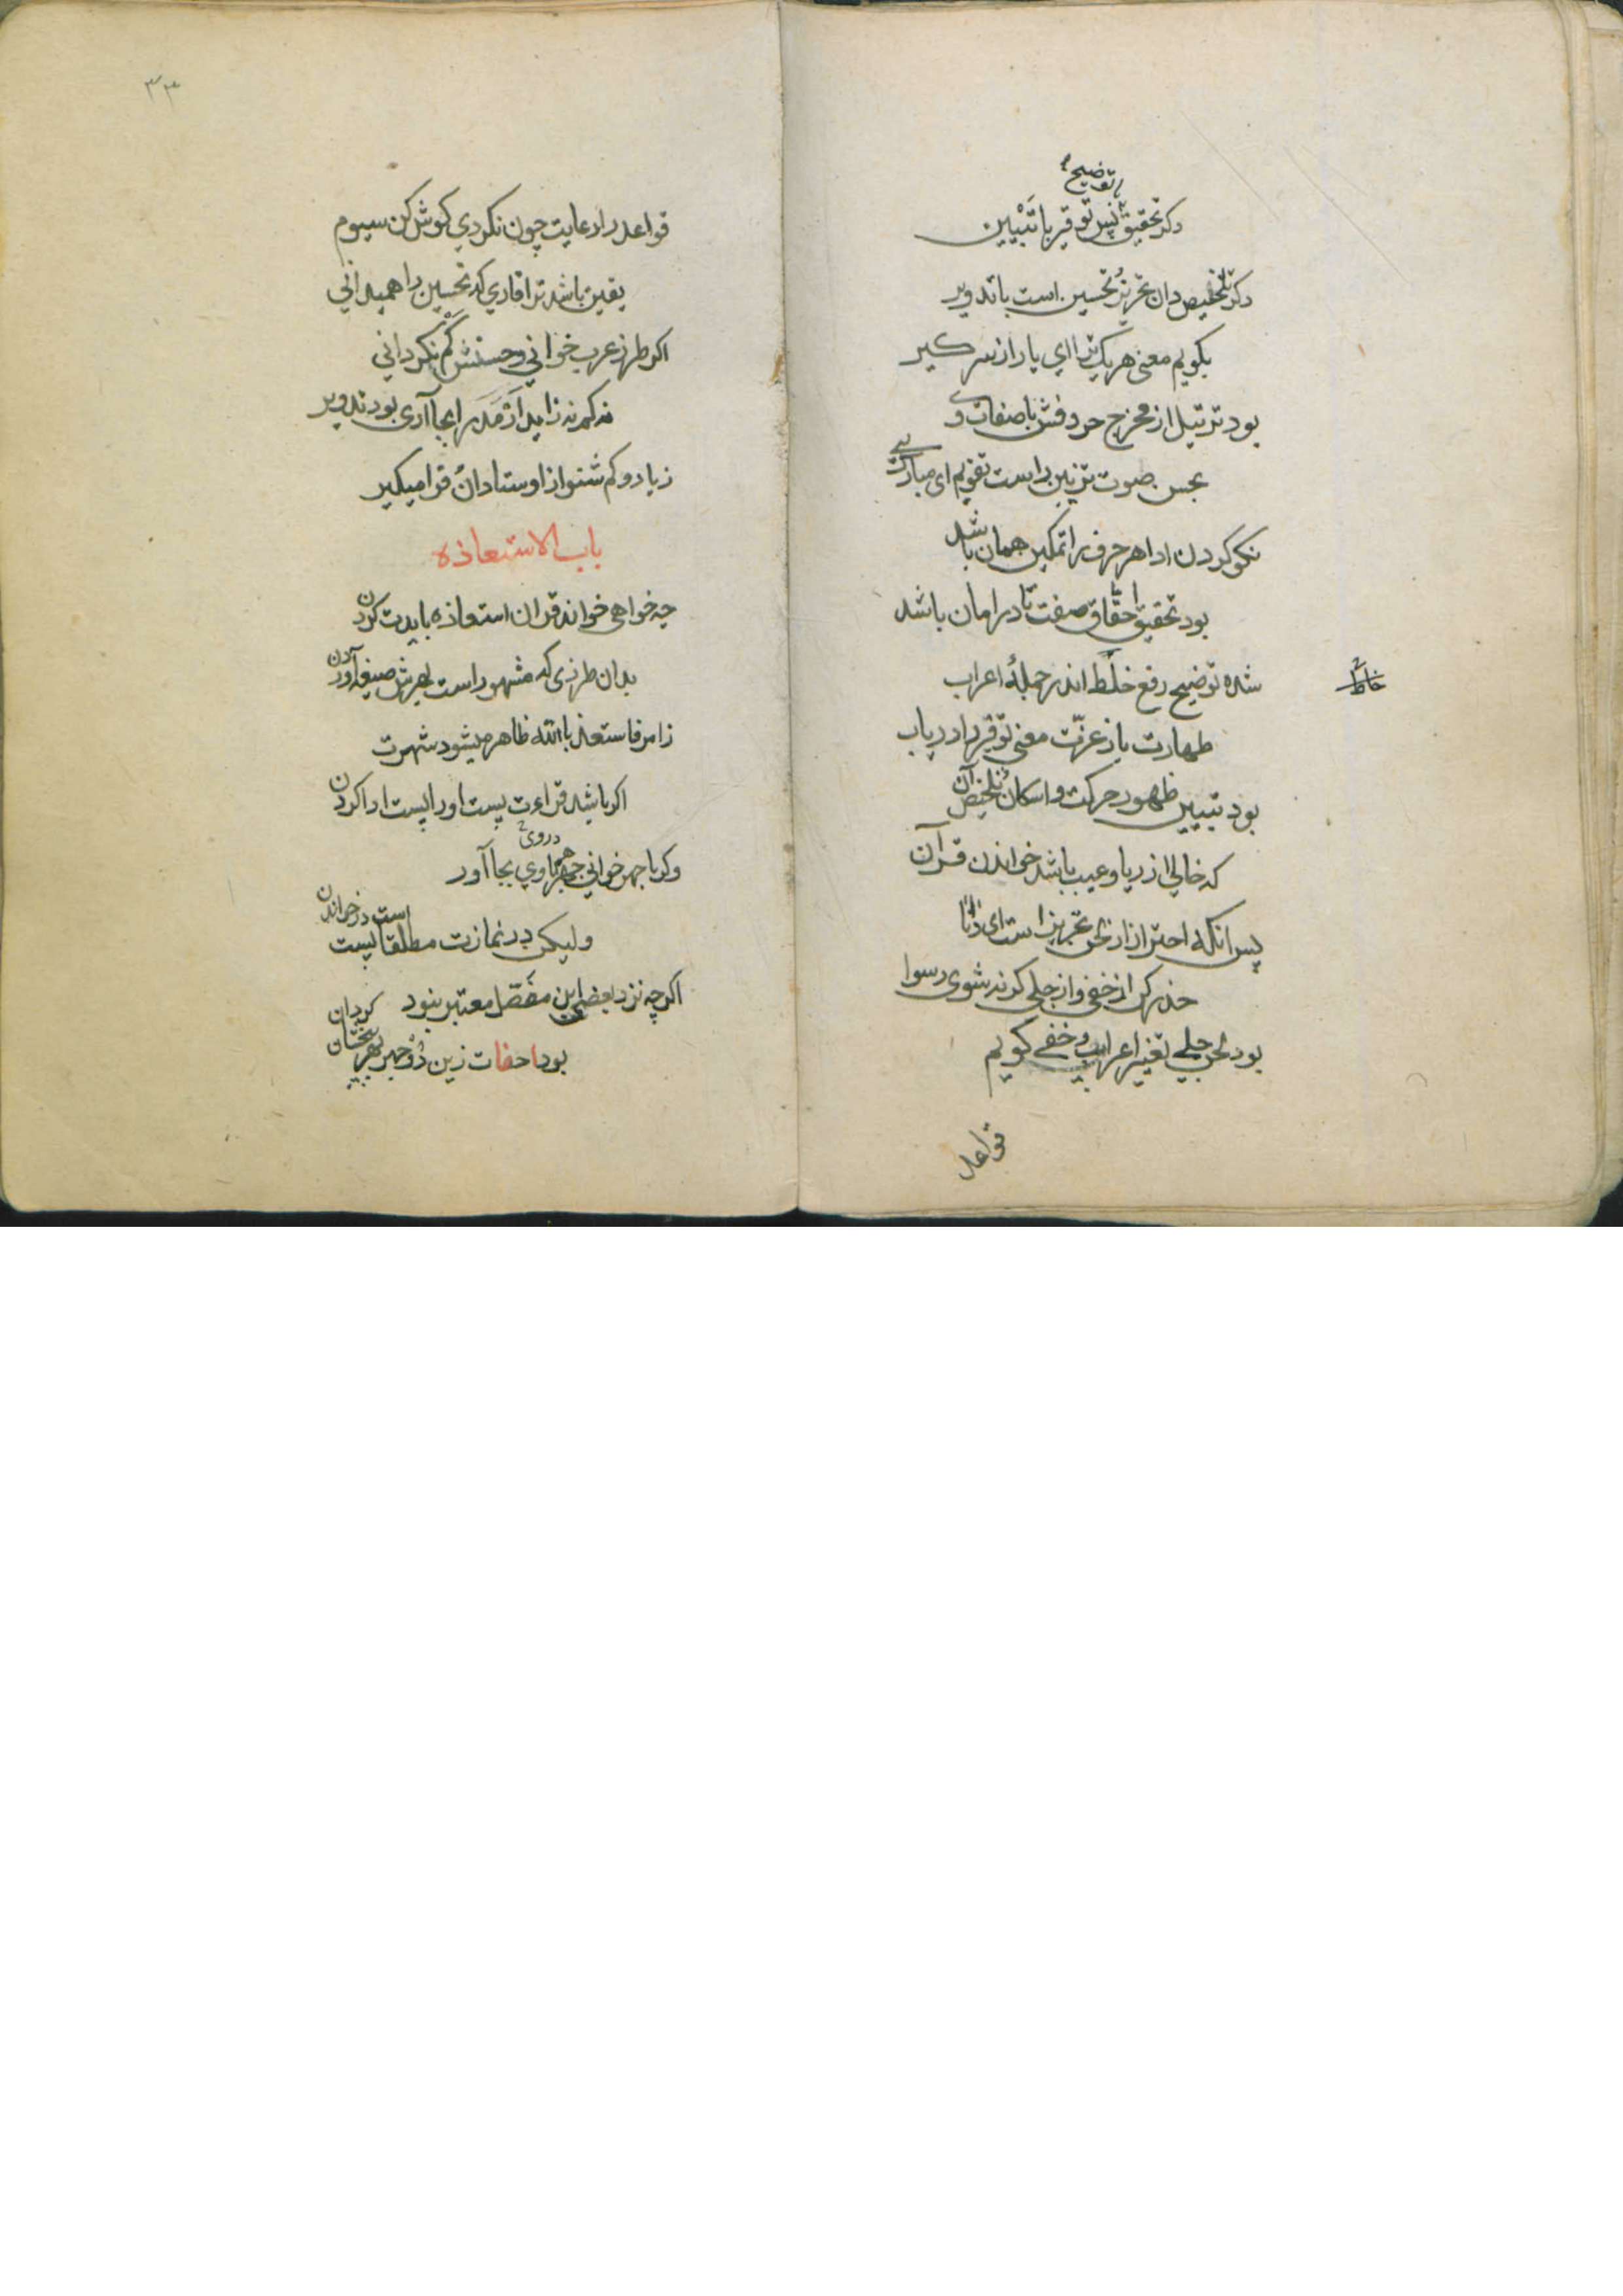 توضیح
دکر تحقیق پس توقیر با تَبْیین
دکر تلخیص دان تحریز و تحسین است با تدویر
بکویم معنی هر یک ترا ای یار از سر کیر
بود ترتیل از مخرج حروفش با صفات وی
بحس صوت تزیین راست تقویم ای مبارک پی
نکو کردن ادا هر حرف را تمکین همان باشد
بود تحقیق احقاق صفت تا در امان باشد
شده توضیح رفع خلط اندر جملهٔ اعراب
خاطر
طهارت باز عزّت معنی توقیر را دریاب
بود تبیین ظهور حرکت و اسکان تلخیص آن
که خالی از ریا و عیب باشد خواندن قرآن
پس انکه احتراز از لحن تحریز است ای دانا
حذر کن از خفی و از جلی کرنه شوی رسوا
بود لحن جلی تغییر اعراب و خفی کویم
قواعد
٣٣
قواعد را رعایت چون نکردی کوش کن سیوم
یقین باشد ترا قاری که تحسین را همیدانی
اکر طرز عرب خوانی و حسنش کم نکردانی
نه کم نه زاید از مَدّ را بجا آری بود تدویر
زیاد و کم شنو از اوستادان فرا میکیر
باب الاستعاذه
چه خواهی خواند قران استعاذه بایدت کردن
بدان طرزی که مشهور است بهرش صیغه آوردن
ز امر فاستعذ بالله ظاهر میشود شهرت
اکر باشد قراءت پست او را پست ادا کردن
در وی
وکر با جهر خوانی جهر را وی بجا آور
ولیکن در نمازت مطلقا پست است در خواندن
اکرچه نزد بعضی این مفصّل معتبر نبود
بود احفات زین دو جهر بهر